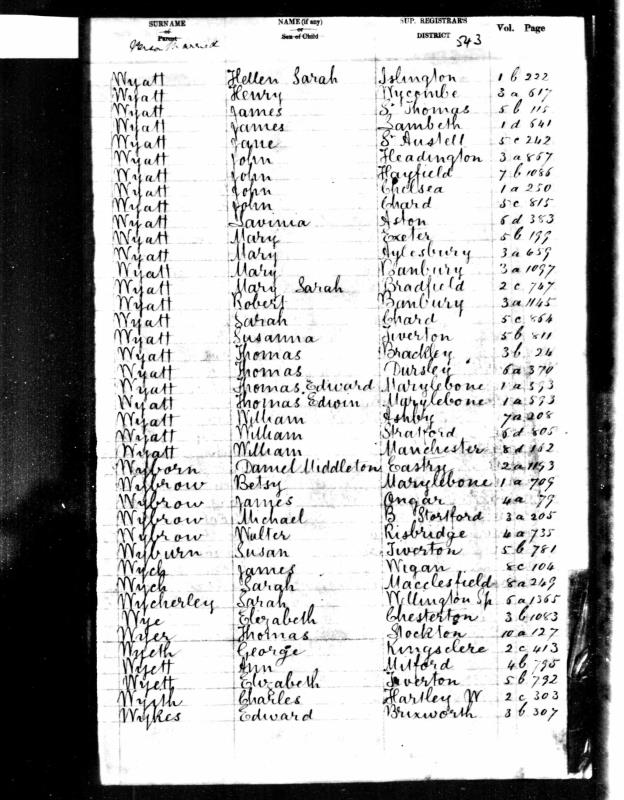 SURNAME of Parent NAME (if any) or Son of Child SUP. REGISTRAR'S DISTRICT Vol. Page
Person Married 543
Wyatt Hellen Sarah Islington 1 b 222
Wyatt Henry Wycombe 3 a 617
Wyatt James St Thomas 5 b 115
Wyatt James Lambeth 1 d 641
Wyatt Jane St Austell 5 c 242
Wyatt John Headington 3 a 867
Wyatt John Hayfield 7 b 1086
Wyatt John Chelsea 1 a 250
Wyatt John Chard 5 c 815
Wyatt Lavinia Aston 6 d 383
Wyatt Mary Exeter 5 b 199
Wyatt Mary Aylesbury 3 a 659
Wyatt Mary Banbury 3 a 1097
Wyatt Mary Sarah Bradfield 2 c 747
Wyatt Robert Banbury 3 a 1145
Wyatt Sarah Chard 5 c 864
Wyatt Susanna Tiverton 5 b 811
Wyatt Thomas Brackley 3 b 24
Wyatt Thomas Dursley 6 a 370
Wyatt Thomas Edward Marylebone 1 a 593
Wyatt Thomas Edwin Marylebone 1 a 593
Wyatt William Ashby 7 a 208
Wyatt William Stratford 6 d 805
Wyatt William Manchester 8 d 162
Wyborn Daniel Middleton Eastry 2 a 1193
Wybrow Betsy Marylebone 1 a 709
Wybrow James Ongar 4 a 79
Wybrow Michael B Stortford 3 a 205
Wybrow Walter Risbridge 4 a 735
Wyburn Susan Tiverton 5 b 781
Wych James Wigan 8 c 104
Wych Sarah Macclesfield 8 a 249
Wycherley Sarah Wellington Sp 6 a 1365
Wye Elizabeth Chesterton 3 b 1083
Wyer Thomas Stockton 10 a 127
Wyeth George Kingsclere 2 c 413
Wyett Ann Mitford 4 b 795
Wyett Elizabeth Tiverton 5 b 792
Wyth Charles Hartley W 2 c 303
Wykes Edward Brixworth 3 b 307